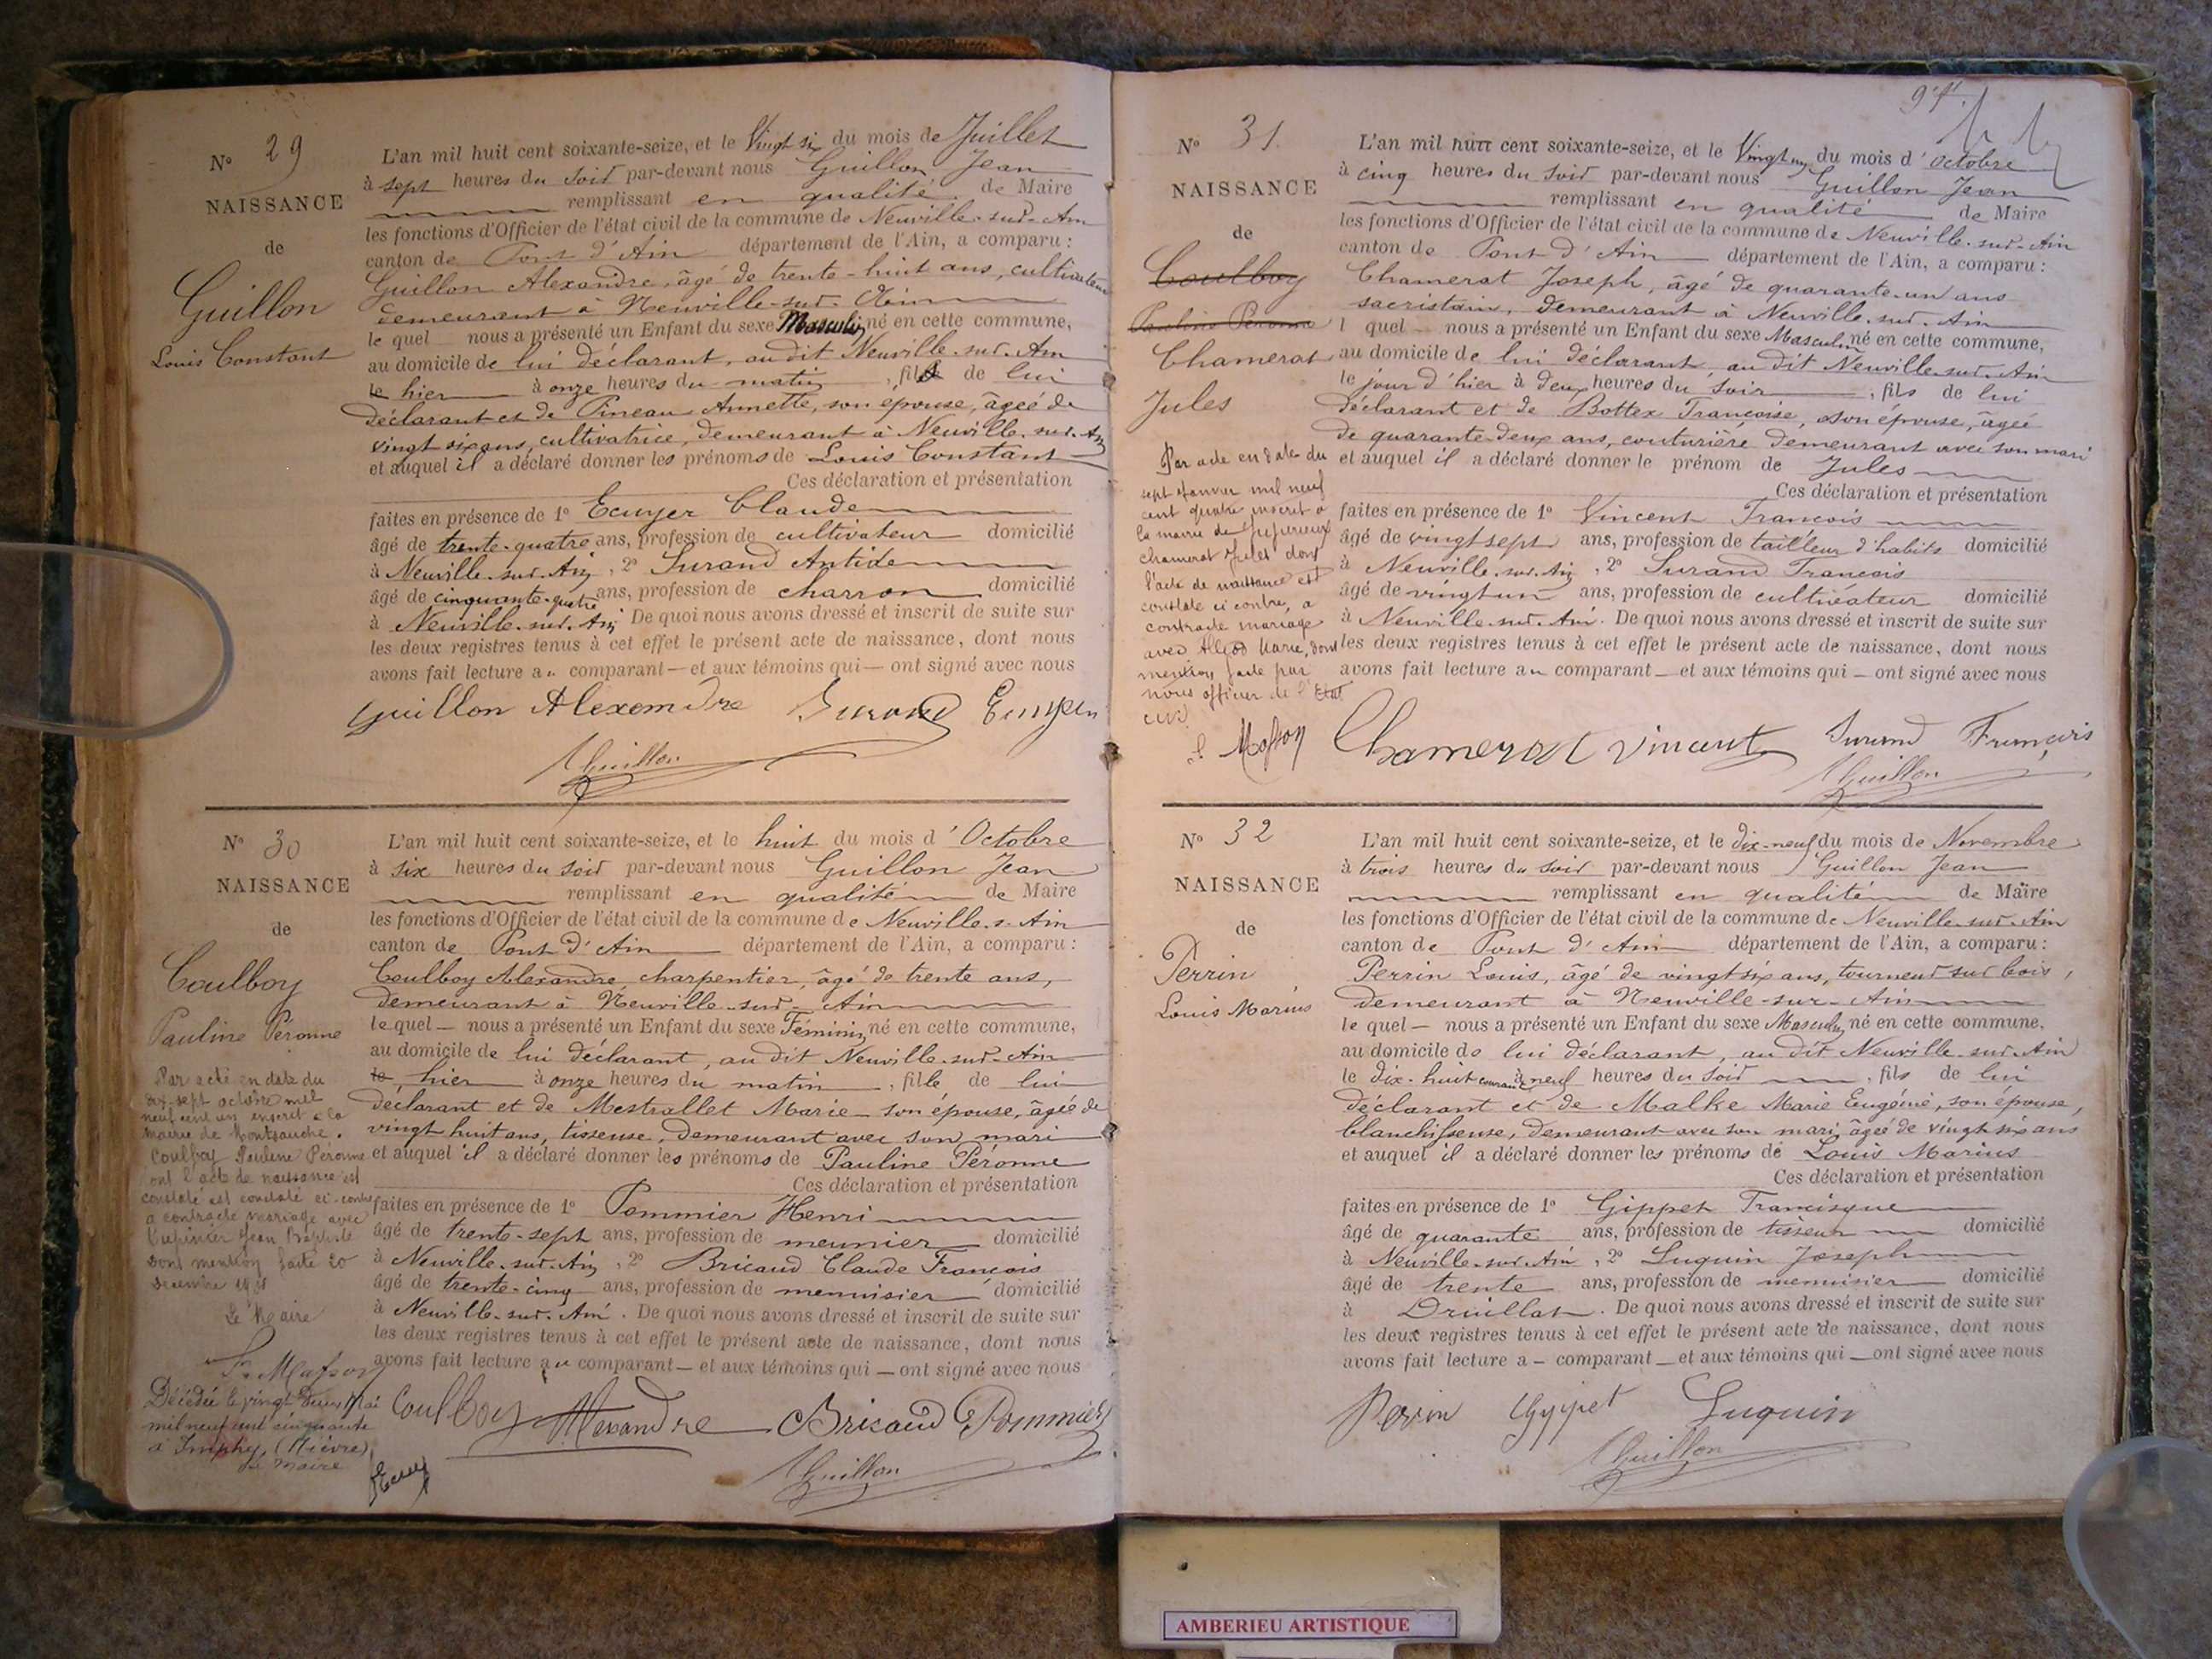 N° 29
NAISSANCE
de
Guillon
Louis Constant
L'an mil huit cent soixante-seize, et le Vingt six du mois de Juillet
à sept heures du soir par-devant nous Guillon Jean
remplissant en qualité de Maire
les fonctions d'Officier de l'état civil de la commune de Neuville-sur-Ain
canton de Pont d'Ain département de l'Ain, a comparu :
Guillon Alexandre, âgé de trente-huit ans, cultivateur
demeurant à Neuville-sur-Ain
le quel nous a présenté un Enfant du sexe Masculin né en cette commune,
au domicile de lui déclarant, au dit Neuville-sur-Ain
le hier à onze heures du matin, fils de lui
déclarant et de Pineau Annette, son épouse, âgée de
vingt six ans, cultivatrice, demeurant à Neuville-sur-Ain
et auquel il a déclaré donner les prénoms de Louis Constant
Ces déclaration et présentation
faites en présence de 1° Ecuyer Claude
âgé de trente-quatre ans, profession de cultivateur domicilié
à Neuville-sur-Ain, 2° Surand Antide
âgé de cinquante-quatre ans, profession de charron domicilié
à Neuville-sur-Ain De quoi nous avons dressé et inscrit de suite sur
les deux registres tenus à cet effet le présent acte de naissance, dont nous
avons fait lecture au comparant — et aux témoins qui — ont signé avec nous
Guillon Alexandre Surand Ecuyer
Guillon
N° 30
NAISSANCE
de
Coulboy
Pauline Péronne
Par acte en date du
dix-sept octobre mil
neuf cent un inscrit à la
mairie de Montsauche.
Coulboy Pauline Péronne
ont l'acte de naissance est
constaté est constaté ci-contre
a contracté mariage avec
Jean Baptiste
dont mention faite 20
Décembre
Le Maire
F. Masson
Décédée le vingt deux Mai
mil neuf cent cinquante
à Imphy (Nièvre)
Le Maire
L'an mil huit cent soixante-seize, et le huit du mois d'Octobre
à six heures du soir par-devant nous Guillon Jean
remplissant en qualité de Maire
les fonctions d'Officier de l'état civil de la commune de Neuville-s-Ain
canton de Pont d'Ain département de l'Ain, a comparu :
Coulboy Alexandre, charpentier, âgé de trente ans,
demeurant à Neuville-sur-Ain
le quel — nous a présenté un Enfant du sexe Féminin né en cette commune,
au domicile de lui déclarant, au dit Neuville-sur-Ain
le, hier à onze heures du matin, fille de lui
déclarant et de Mestrallet Marie son épouse, âgée de
vingt huit ans, tisseuse, demeurant avec son mari
et auquel il a déclaré donner les prénoms de Pauline Péronne
Ces déclaration et présentation
faites en présence de 1° Pommier Henri
âgé de trente-sept ans, profession de meunier domicilié
à Neuville-sur-Ain, 2° Bricaud Claude François
âgé de trente-cinq ans, profession de menuisier domicilié
à Neuville-sur-Ain. De quoi nous avons dressé et inscrit de suite sur
les deux registres tenus à cet effet le présent acte de naissance, dont nous
avons fait lecture au comparant — et aux témoins qui — ont signé avec nous
Coulboy Alexandre Bricaud Pommier
Guillon
N° 31.
NAISSANCE
de
Coulboy
Pauline Péronne
Chamerat
Jules
Par acte en date du
sept Janvier mil neuf
cent quatre inscrit à
la mairie de Jujurieux
chamerat Jules dont
l'acte de naissance est
constaté ci contre, a
contracté mariage
avec Marie, dont
mention faite par
nous officier de l'Etat
civil
Masson
L'an mil huit cent soixante-seize, et le Vingt un du mois d'Octobre
à cinq heures du soir par-devant nous Guillon Jean
remplissant en qualité de Maire
les fonctions d'Officier de l'état civil de la commune de Neuville-sur-Ain
canton de Pont d'Ain département de l'Ain, a comparu :
Chamerat Joseph, âgé de quarante-un ans
sacristain, demeurant à Neuville-sur-Ain
l quel — nous a présenté un Enfant du sexe Masculin né en cette commune,
au domicile de lui déclarant, au dit Neuville-sur-Ain
le jour d'hier à deux heures du soir, fils de lui
déclarant et de Bottex Françoise, son épouse, âgée
de quarante-deux ans, couturière demeurant avec son mari
et auquel il a déclaré donner le prénom de Jules
Ces déclaration et présentation
faites en présence de 1° Vincent François
âgé de vingt sept ans, profession de tailleur d'habits domicilié
à Neuville-sur-Ain, 2° Surand François
âgé de vingt un ans, profession de cultivateur domicilié
à Neuville-sur-Ain. De quoi nous avons dressé et inscrit de suite sur
les deux registres tenus à cet effet le présent acte de naissance, dont nous
avons fait lecture au comparant — et aux témoins qui — ont signé avec nous
Chamerat Vincent Surand François
Guillon
N° 32
NAISSANCE
de
Perrin
Louis Marius
L'an mil huit cent soixante-seize, et le dix-neuf du mois de Novembre
à trois heures du soir par-devant nous Guillon Jean
remplissant en qualité de Maire
les fonctions d'Officier de l'état civil de la commune de Neuville-sur-Ain
canton de Pont d'Ain département de l'Ain, a comparu :
Perrin Louis, âgé de vingt six ans, tourneur sur bois,
demeurant à Neuville-sur-Ain
le quel — nous a présenté un Enfant du sexe Masculin né en cette commune,
au domicile de lui déclarant, au dit Neuville-sur-Ain
le dix-huit courant à neuf heures du soir, fils de lui
déclarant et de Malke Marie Eugénie, son épouse,
blanchisseuse, demeurant avec son mari âgée de vingt six ans
et auquel il a déclaré donner les prénoms de Louis Marius
Ces déclaration et présentation
faites en présence de 1° Gippet Francisque
âgé de quarante ans, profession de tisseur domicilié
à Neuville-sur-Ain, 2° Luquin Joseph
âgé de trente ans, profession de menuisier domicilié
à Druillat. De quoi nous avons dressé et inscrit de suite sur
les deux registres tenus à cet effet le présent acte de naissance, dont nous
avons fait lecture a — comparant — et aux témoins qui — ont signé avec nous
Perrin Gyppet Luquin
Guillon
AMBERIEU ARTISTIQUE